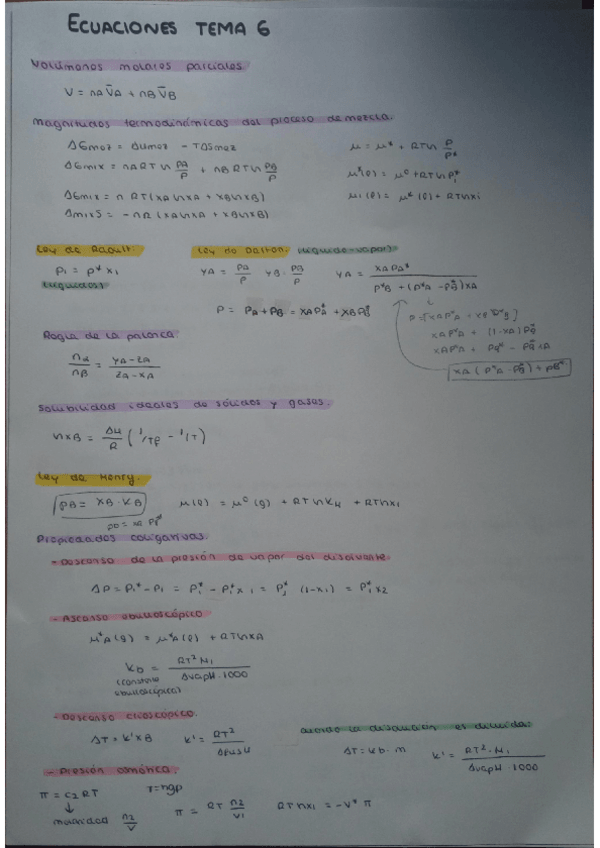 ECUACIONES TEMA 6
Volúmenes molares parciales.
V = nA V̄A + nB V̄B
Magnitudes termodinámicas del proceso de mezcla.
ΔGmez = ΔHmez - TΔSmez
μ = μ* + RT ln P/P*
ΔGmix = nA RT ln PA/P + nB RT ln PB/P
μ*(l) = μ° + RT ln P*i
ΔGmix = n RT (xA ln xA + xB ln xB)
μi(l) = μ*(l) + RT ln xi
ΔmixS = - nR (xA ln xA + xB ln xB)
Ley de Raoult.
Ley de Dalton. (líquido-vapor)
Pi = P* xi
(líquidos)
yA = PA/P yB = PB/P yA = xA PA* / P*B + (P*A - P*B) xA
P = PA + PB = xA PA* + xB PB*
P = [xA P*A + xB P*B]
xA P*A + (1-xA) PB*
xA P*A + PB* - PB* xA
xA (P*A - PB*) + PB*
Regla de la palanca.
nα/nB = yA - zA / zA - xA
Solubilidad ideales de sólidos y gases.
ln xB = ΔH/R (1/Tf - 1/T)
Ley de Henry.
PB = xB · KB
μ(l) = μ°(g) + RT ln KH + RT ln xi
Propiedades coligativas.
- Descenso de la presión de vapor del disolvente.
ΔP = P1* - P1 = P1* - P1* x1 = P1* (1-x1) = P1* x2
- Ascenso ebulloscópico
μ*A(g) = μ*A(l) + RT ln xA
Kb = RT² M1 / ΔvapH · 1000
(constante ebulloscópica)
- Descenso crioscópico.
cuando la disolución es diluida:
ΔT = K' xB K' = RT² / ΔfusH
ΔT = Kb · m K' = RT² · M1 / ΔvapH · 1000
- Presión osmótica.
π = c2 RT
molaridad n2/V
π = RT n2/V1 RT ln x1 = -V* π